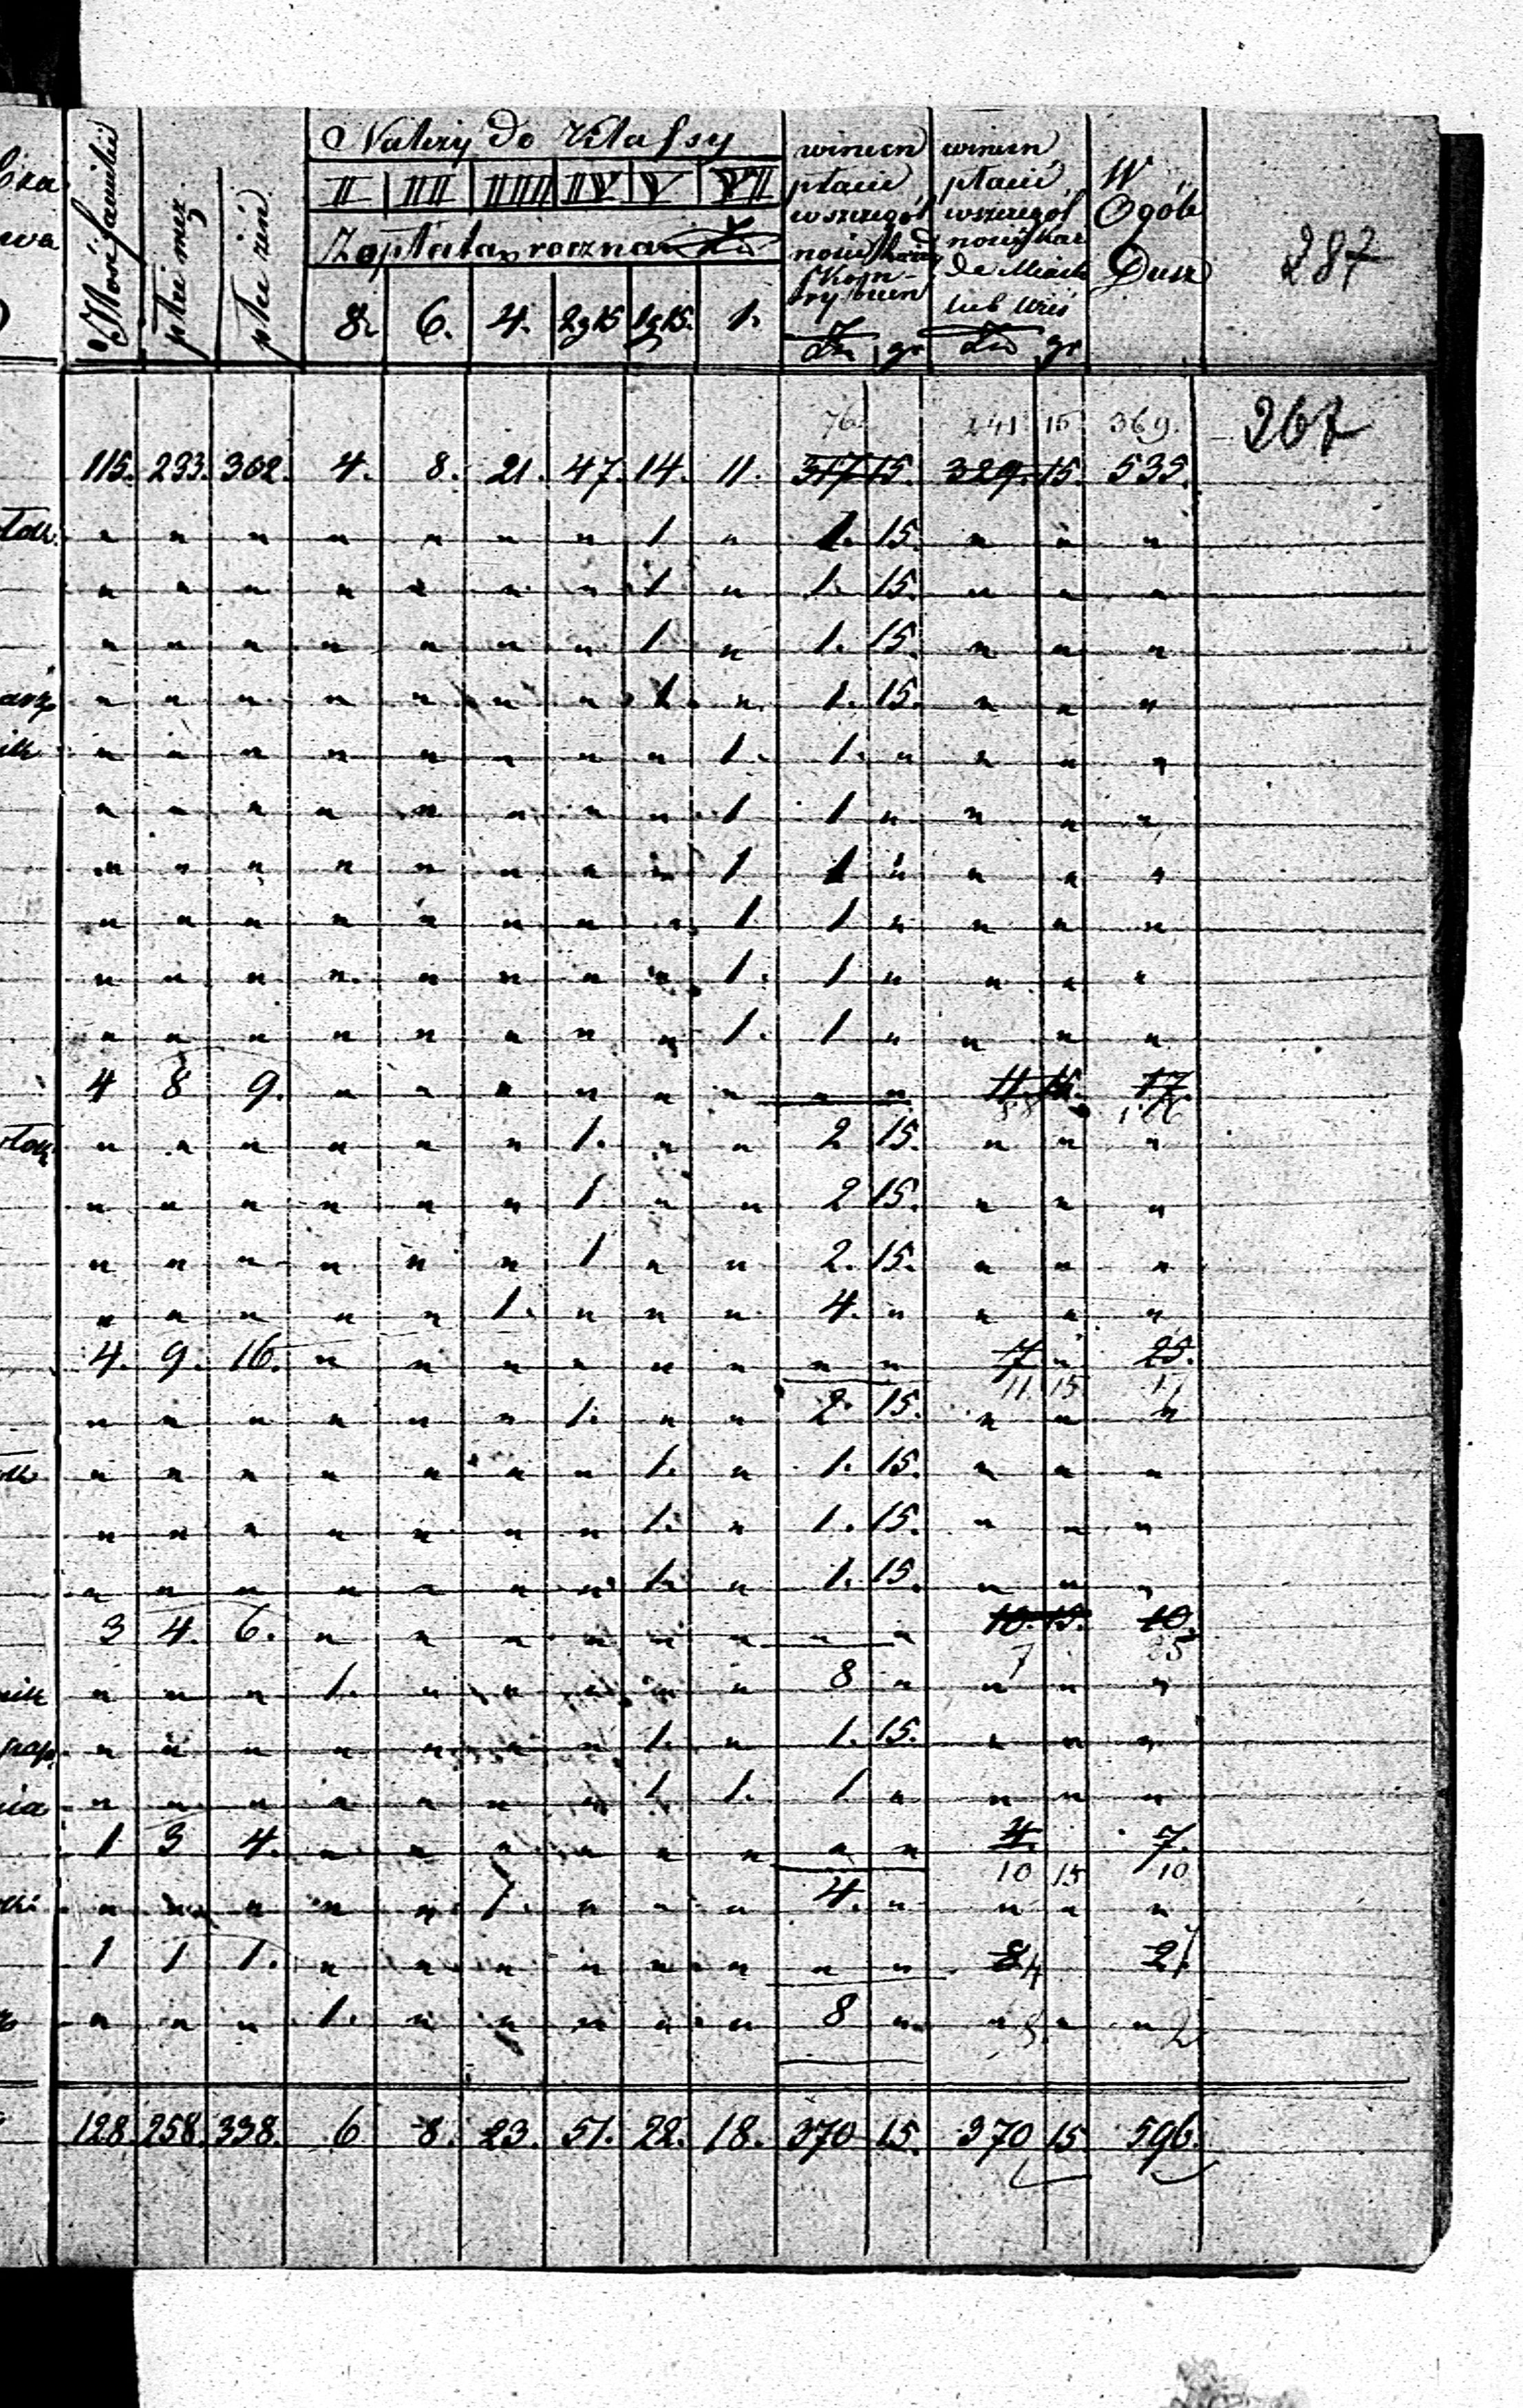 Ilość familii
płci męz
płci żeń
Należy do Klassy
II III IIII IV V VI
Zapłata roczna
8. 6. 4. 2g15 1g15. 1.
winien płacić wszczegól
Zł gr
winien płacić wszczegól
lub Wieś
Zł gr
W Ogóle Dusz
287
76 241 15 369. 267
115. 233. 302. 4. 8. 21. 47. 14. 11. 317 15. 329. 15. 535.
" " " " " " " 1 " 1. 15. " " "
" " " " " " " 1 " 1. 15. " " "
" " " " " " " 1. " 1. 15. " " "
" " " " " " " 1. " 1. 15. " " "
" " " " " " " " 1. 1. " " " "
" " " " " " " " 1 1 " " " "
" " " " " " " " 1 1 " " " "
" " " " " " " " 1. 1 " " " "
" " " " " " " " 1. 1 " " " "
" " " " " " " " 1. 1 " " " "
4 8 9. " " " " " " " " 11. 15. 17.
" " " " " " 1. " " 2 15. " " "
" " " " " " 1. " " 2 15. " " "
" " " " " " 1 " " 2. 15. " " "
" " " " " 1. " " " 4. " " " "
4. 9. 16. " " " " " " " " 7 " 25.
11 15 17
" " " " " " 1. " " 2 15. " " "
" " " " " " " 1. " 1. 15. " " "
" " " " " " " 1. " 1. 15. " " "
" " " " " " " 1. " 1. 15. " " "
3 4. 6. " " " " " " " " 10. 15. 10.
7 25
" " " 1. " " " " " 8 " " " "
" " " " " " " 1. " 1. 15. " " "
" " " " " " " 1 1. 1 " " " "
1 3 4. " " " " " " " " 4. 7.
10 15 10
" " " " " 1. " " " 4. " " " "
1 1 1. " " " " " " " " 8 4 2. 7
" " " 1. " " " " " 8 " " 8. " " 2
128 258. 338. 6 8. 23. 51. 22. 18. 370 15. 370 15 596.